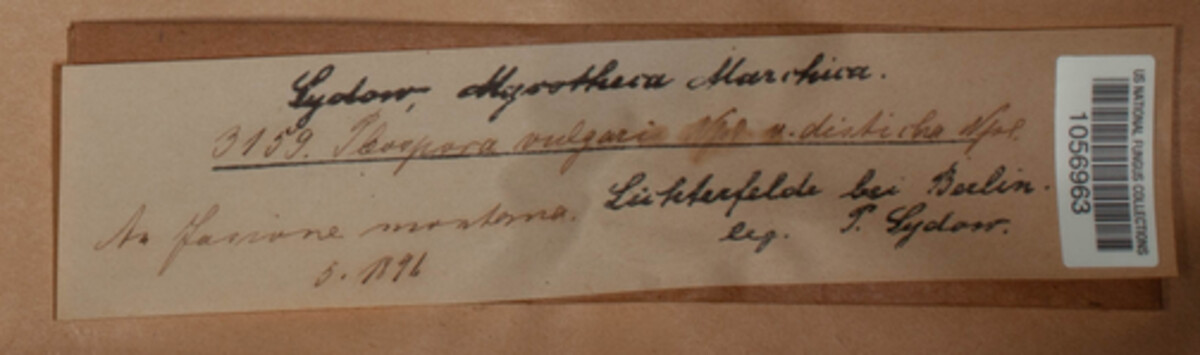 Sydow, Mycotheca Marchica.
3159. Pleospora vulgaris Npl. v. disticha Npl.
An Jasione montana.
Lichterfelde bei Berlin.
5. 1896
leg. P. Sydow.
US NATIONAL FUNGUS COLLECTIONS
1056963